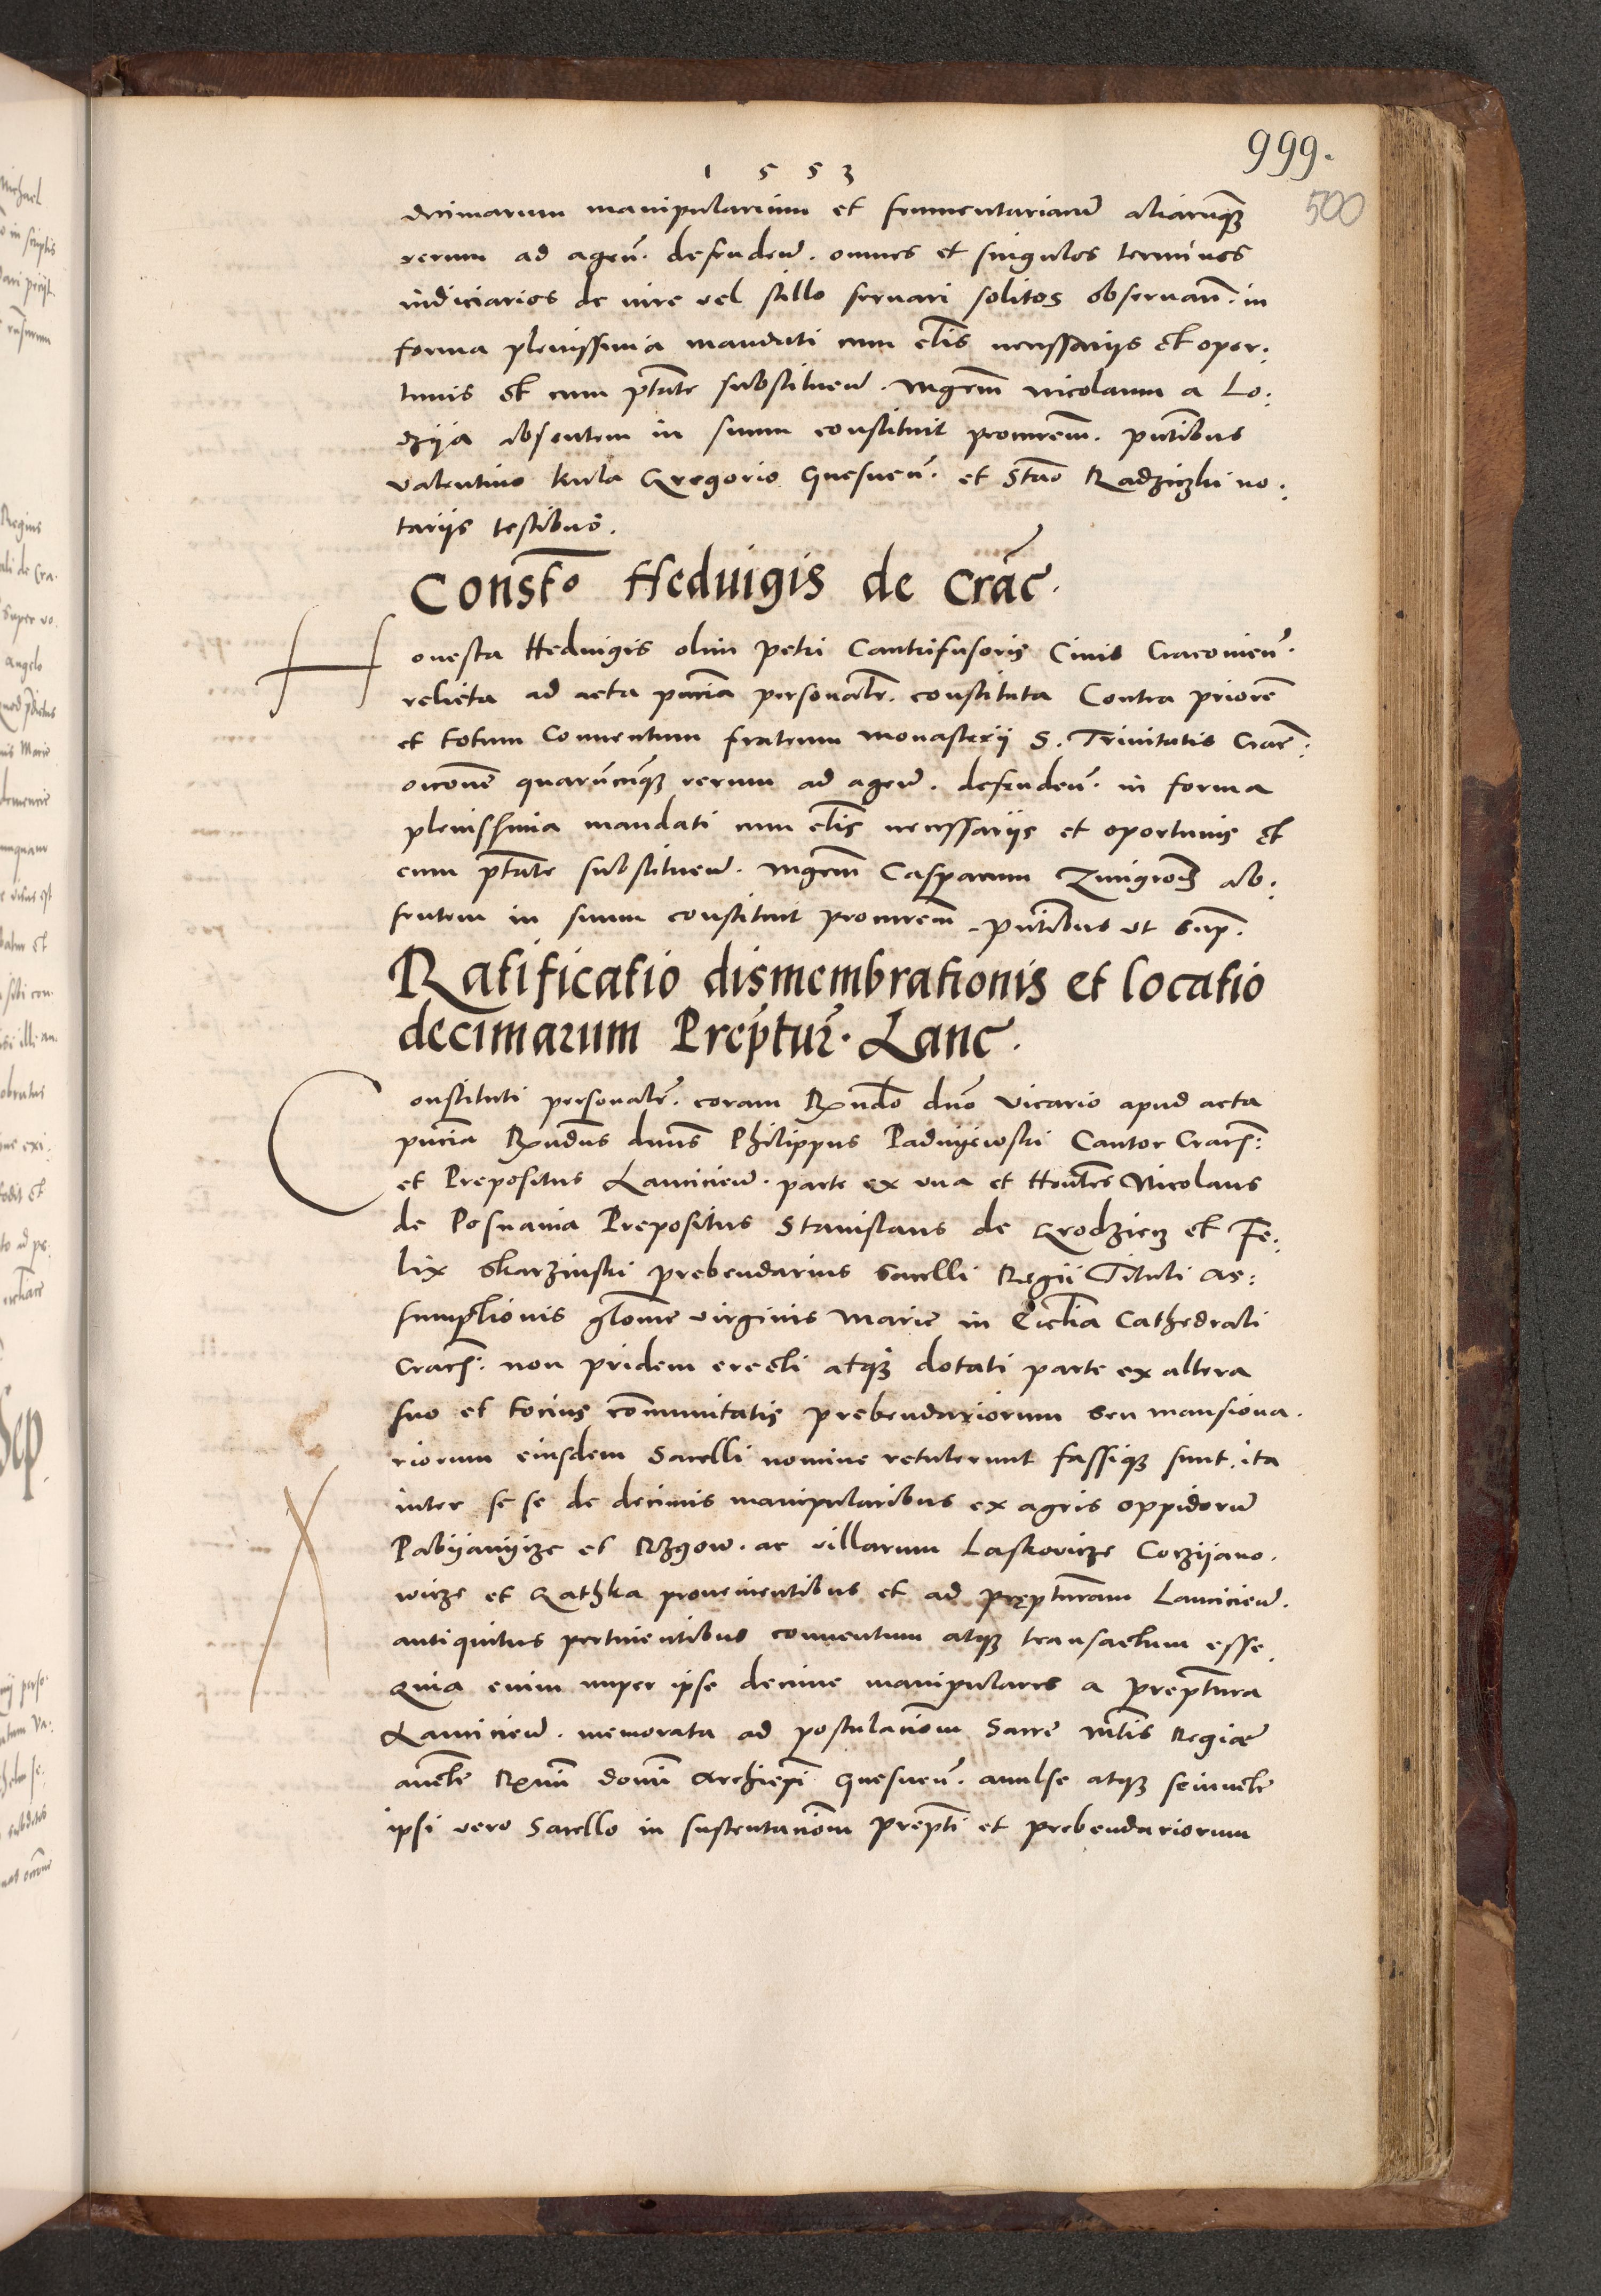 999.
1 5 5 3
500
decimarum manipularium et frumentariarũ aliarũq3
rerum ad ageñ. defendeñ. omnes et singulos terminos
iudiciarios de iure vel stillo seruari solitos obseruañ. in
forma plenissima mandati cum cl̃is necessariis et opor:
tunis et cum ptãte substitueñ. Mgr̃m Nicolaum a Lo:
dzija absentem in suum constituit procurem̃. pñtibus
Valentino Kula Gregorio Gnesneñ. et Stão Radziczki no:
tariis testibus.
Constõ Hedvigis de Crac̃.
Honesta Heduigis olim Petri Cantrifusoris Ciuis Cracouieñ.
relicta ad acta pñtia personalr̃. constituta Contra priorem̃
et totum Conuentum fratrum Monasterij S. Trinitatis Crac̃:
occõne quarũcũq3 rerum ad ageñ. defendeñ. in forma
plenissima mandati cum cl̃is necessariis et oportunis et
cum ptãte substitueñ. Mgr̃m Casparum ab:
sentem in suum constituit procurem̃. pñtibus vt sup̃.
Ratificatio dismembrationis et locatio
decimarum Prep̃tur̃. Lanc.
Constituti personalr̃. coram Rñdo dño Vicario apud acta
pñtia Rñdus dñus Philippus Padniewski Cantor Crac̃:
et Prepositus Lancicieñ. parte ex vna et Honl̃es Nicolaus
de Posnania Prepositus Stanislaus de Grodziecz et Fe:
lix Skarzinski prebendarius Sacelli Regii Tituli As:
sumptionis glõse virginis Marie in Ecclĩa Cathedrali
Crac̃: non pridem erecti atq3 dotati parte ex altera
suo et tocius cõmunitatis prebendariorum seu mansiona.
riorum eiusdem Sacelli nomine retulerunt fassiq3 sunt, ita
inter se se de decimis manipularibus ex agris oppidorũ
Pabyanijcze et Rzgow. ac villarum Laskovicze Corzijano.
wicze et Gathka prouenientibus et ad prep̃turam Lancicieñ.
antiquitus pertinentibus conuentum atq3 transactum esse.
Quia enim nuper ipse decime manipulares a prep̃tura
Lancicieñ. memorata ad postulaciõem Sacre Mt̃is Regiæ
aucte Rmi domi Archiepĩ Gnesneñ. auulse atq3 seiuncte
ipsi vero Sacello in sustentaciõem prep̃ti et prebendariorum